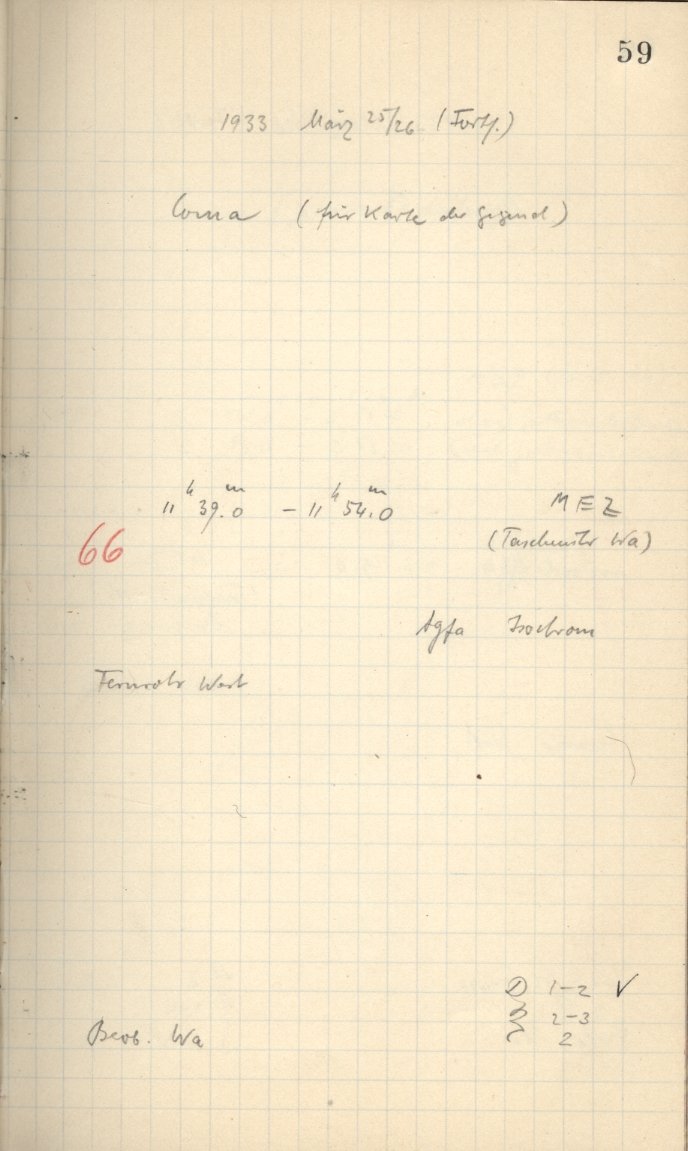 59
1933 März 25/26 (Forts.)
Coma (für Karte der Gegend)
11 h 39.0 m – 11 h 54.0 m MEZ
66 (Taschenuhr Wa)
Agfa Isochrom
Fernrohr West
1–2 ✓
2–3
Beob. Wa 2